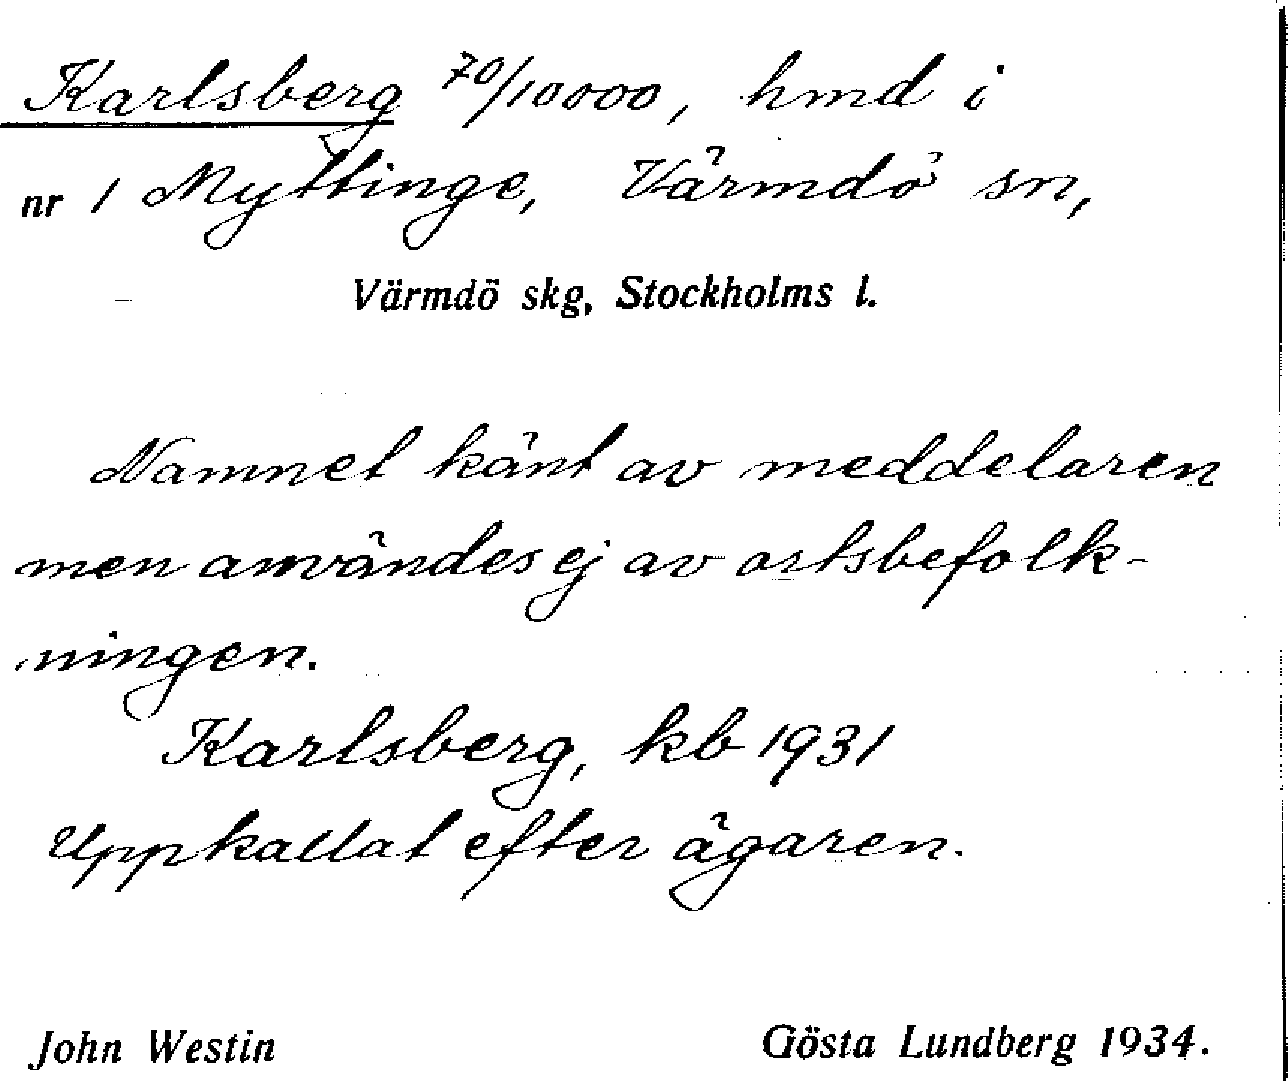 Karlsberg 70/10000, hmd i
nr 1 Myttinge, Värmdö sn,
Värmdö skg, Stockholms l.
Namnet känt av meddelaren
men användes ej av ortsbefolk-
ningen.
Karlsberg, kb 1931
Uppkallat efter ägaren.
John Westin Gösta Lundberg 1934.